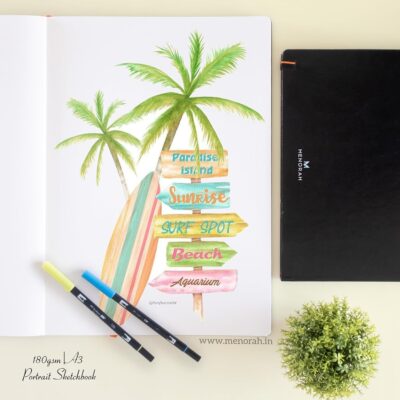 Paradise
island
Sunrise
SURF SPOT
Beach
Aquarium
MENORAH
www.menorah.in
180gsm | A3
Portrait Sketchbook